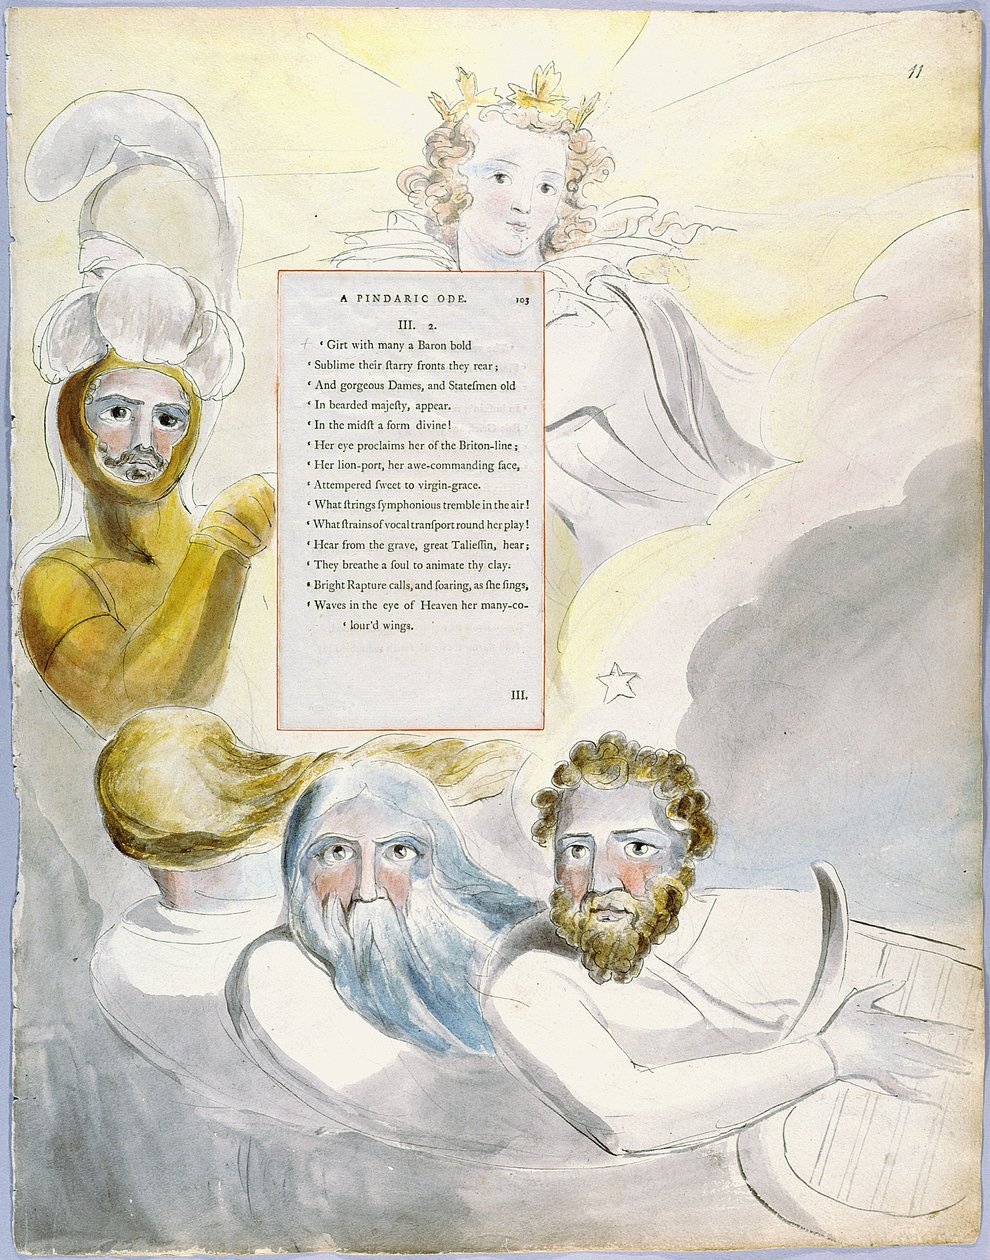 11
A PINDARIC ODE. 103
III. 2.
‘ Girt with many a Baron bold
‘ Sublime their ſtarry fronts they rear;
‘ And gorgeous Dames, and Stateſmen old
‘ In bearded majeſty, appear.
‘ In the midſt a form divine!
‘ Her eye proclaims her of the Briton-line;
‘ Her lion-port, her awe-commanding face,
‘ Attempered ſweet to virgin-grace.
‘ What ſtrings ſymphonious tremble in the air!
‘ What ſtrains of vocal tranſport round her play!
‘ Hear from the grave, great Talieſſin, hear;
‘ They breathe a ſoul to animate thy clay.
‘ Bright Rapture calls, and ſoaring, as ſhe ſings,
‘ Waves in the eye of Heaven her many-co-
‘ lour’d wings.
III.